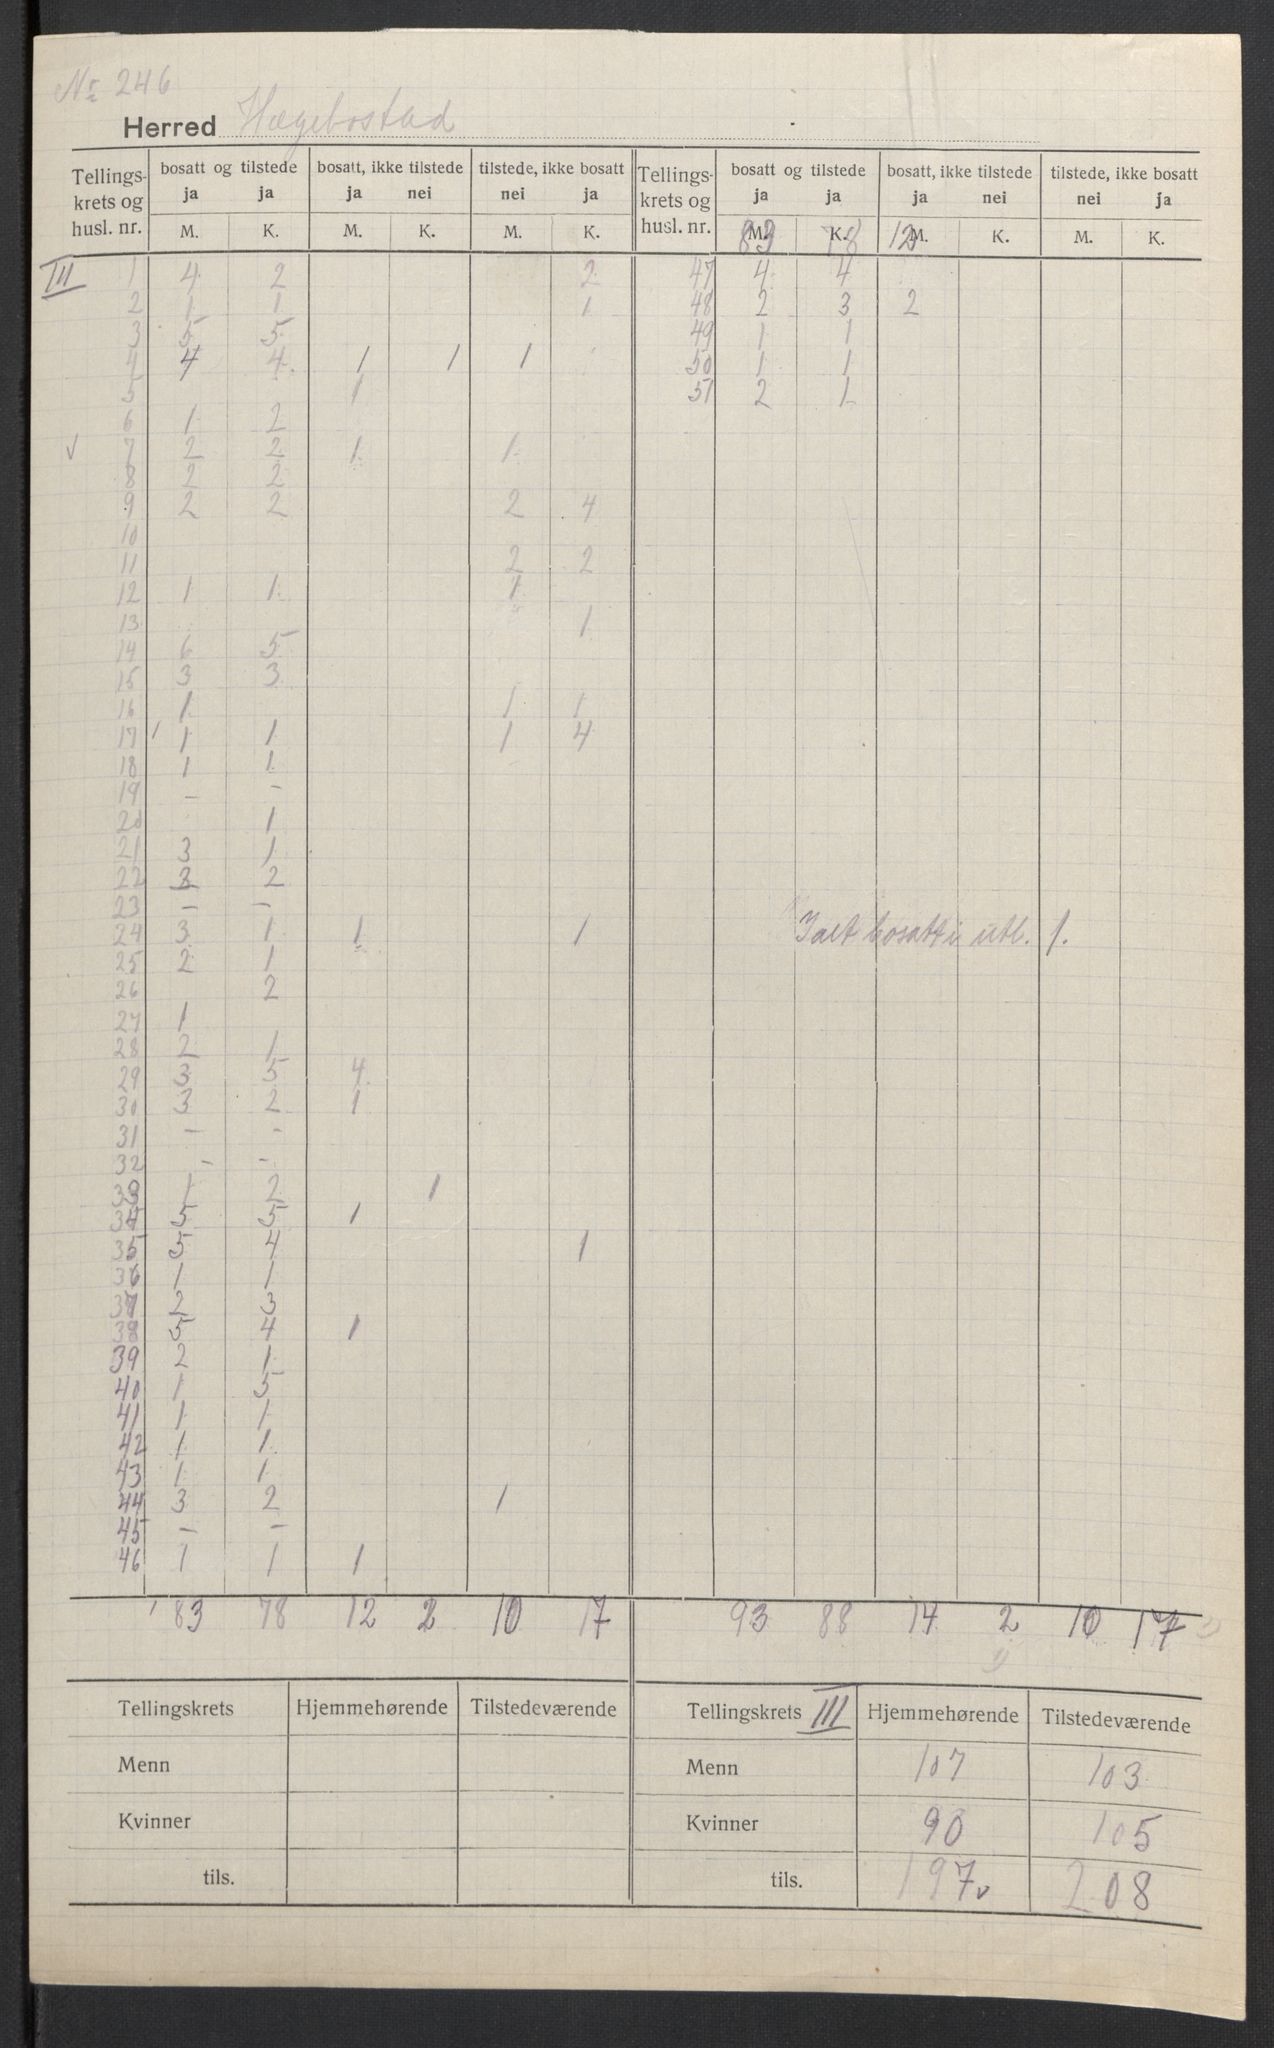 No 246
Herred Hægebostad
Tellingskrets og husl. nr. | bosatt og tilstede ja ja | bosatt, ikke tilstede ja nei | tilstede, ikke bosatt nei ja | Tellingskrets og husl. nr. | bosatt og tilstede ja ja | bosatt, ikke tilstede ja nei | tilstede, ikke bosatt nei ja
M. K. M. K. M. K. M. K. M. K. M. K.
83 78 12
III 1 4 2 2 47 4 4
2 1 1 1 48 2 3 2
3 5 5 49 1 1
4 4 4 1 1 1 50 1 1
5 1 51 2 1
6 1 2
√ 7 2 2 1 1
8 2 2
9 2 2 2 4
10
11 2 2
12 1 1 1
13 1
14 6 5
15 3 3
16 1 1 1
17 1 1 1 4
18 1 1
19 – –
20 1
21 3 1
22 3 2
23 – –
24 3 1 1 1 Ialt bosatt i utl. 1.
25 2 1
26 2
27 1
28 2 1
29 3 5 4
30 3 2 1
31 – –
32 – –
33 1 2 1
34 5 5 1
35 5 4 1
36 1 1
37 2 3
38 5 4 1
39 2 1
40 1 5
41 1 1
42 1 1
43 1 1
44 3 2 1
45 – –
46 1 1 1
83 78 12 2 10 17 93 88 14 2 10 17
Tellingskrets | Hjemmehørende | Tilstedeværende | Tellingskrets III | Hjemmehørende | Tilstedeværende
Menn Menn 107 103
Kvinner Kvinner 90 105
tils. tils. 197 √ 208